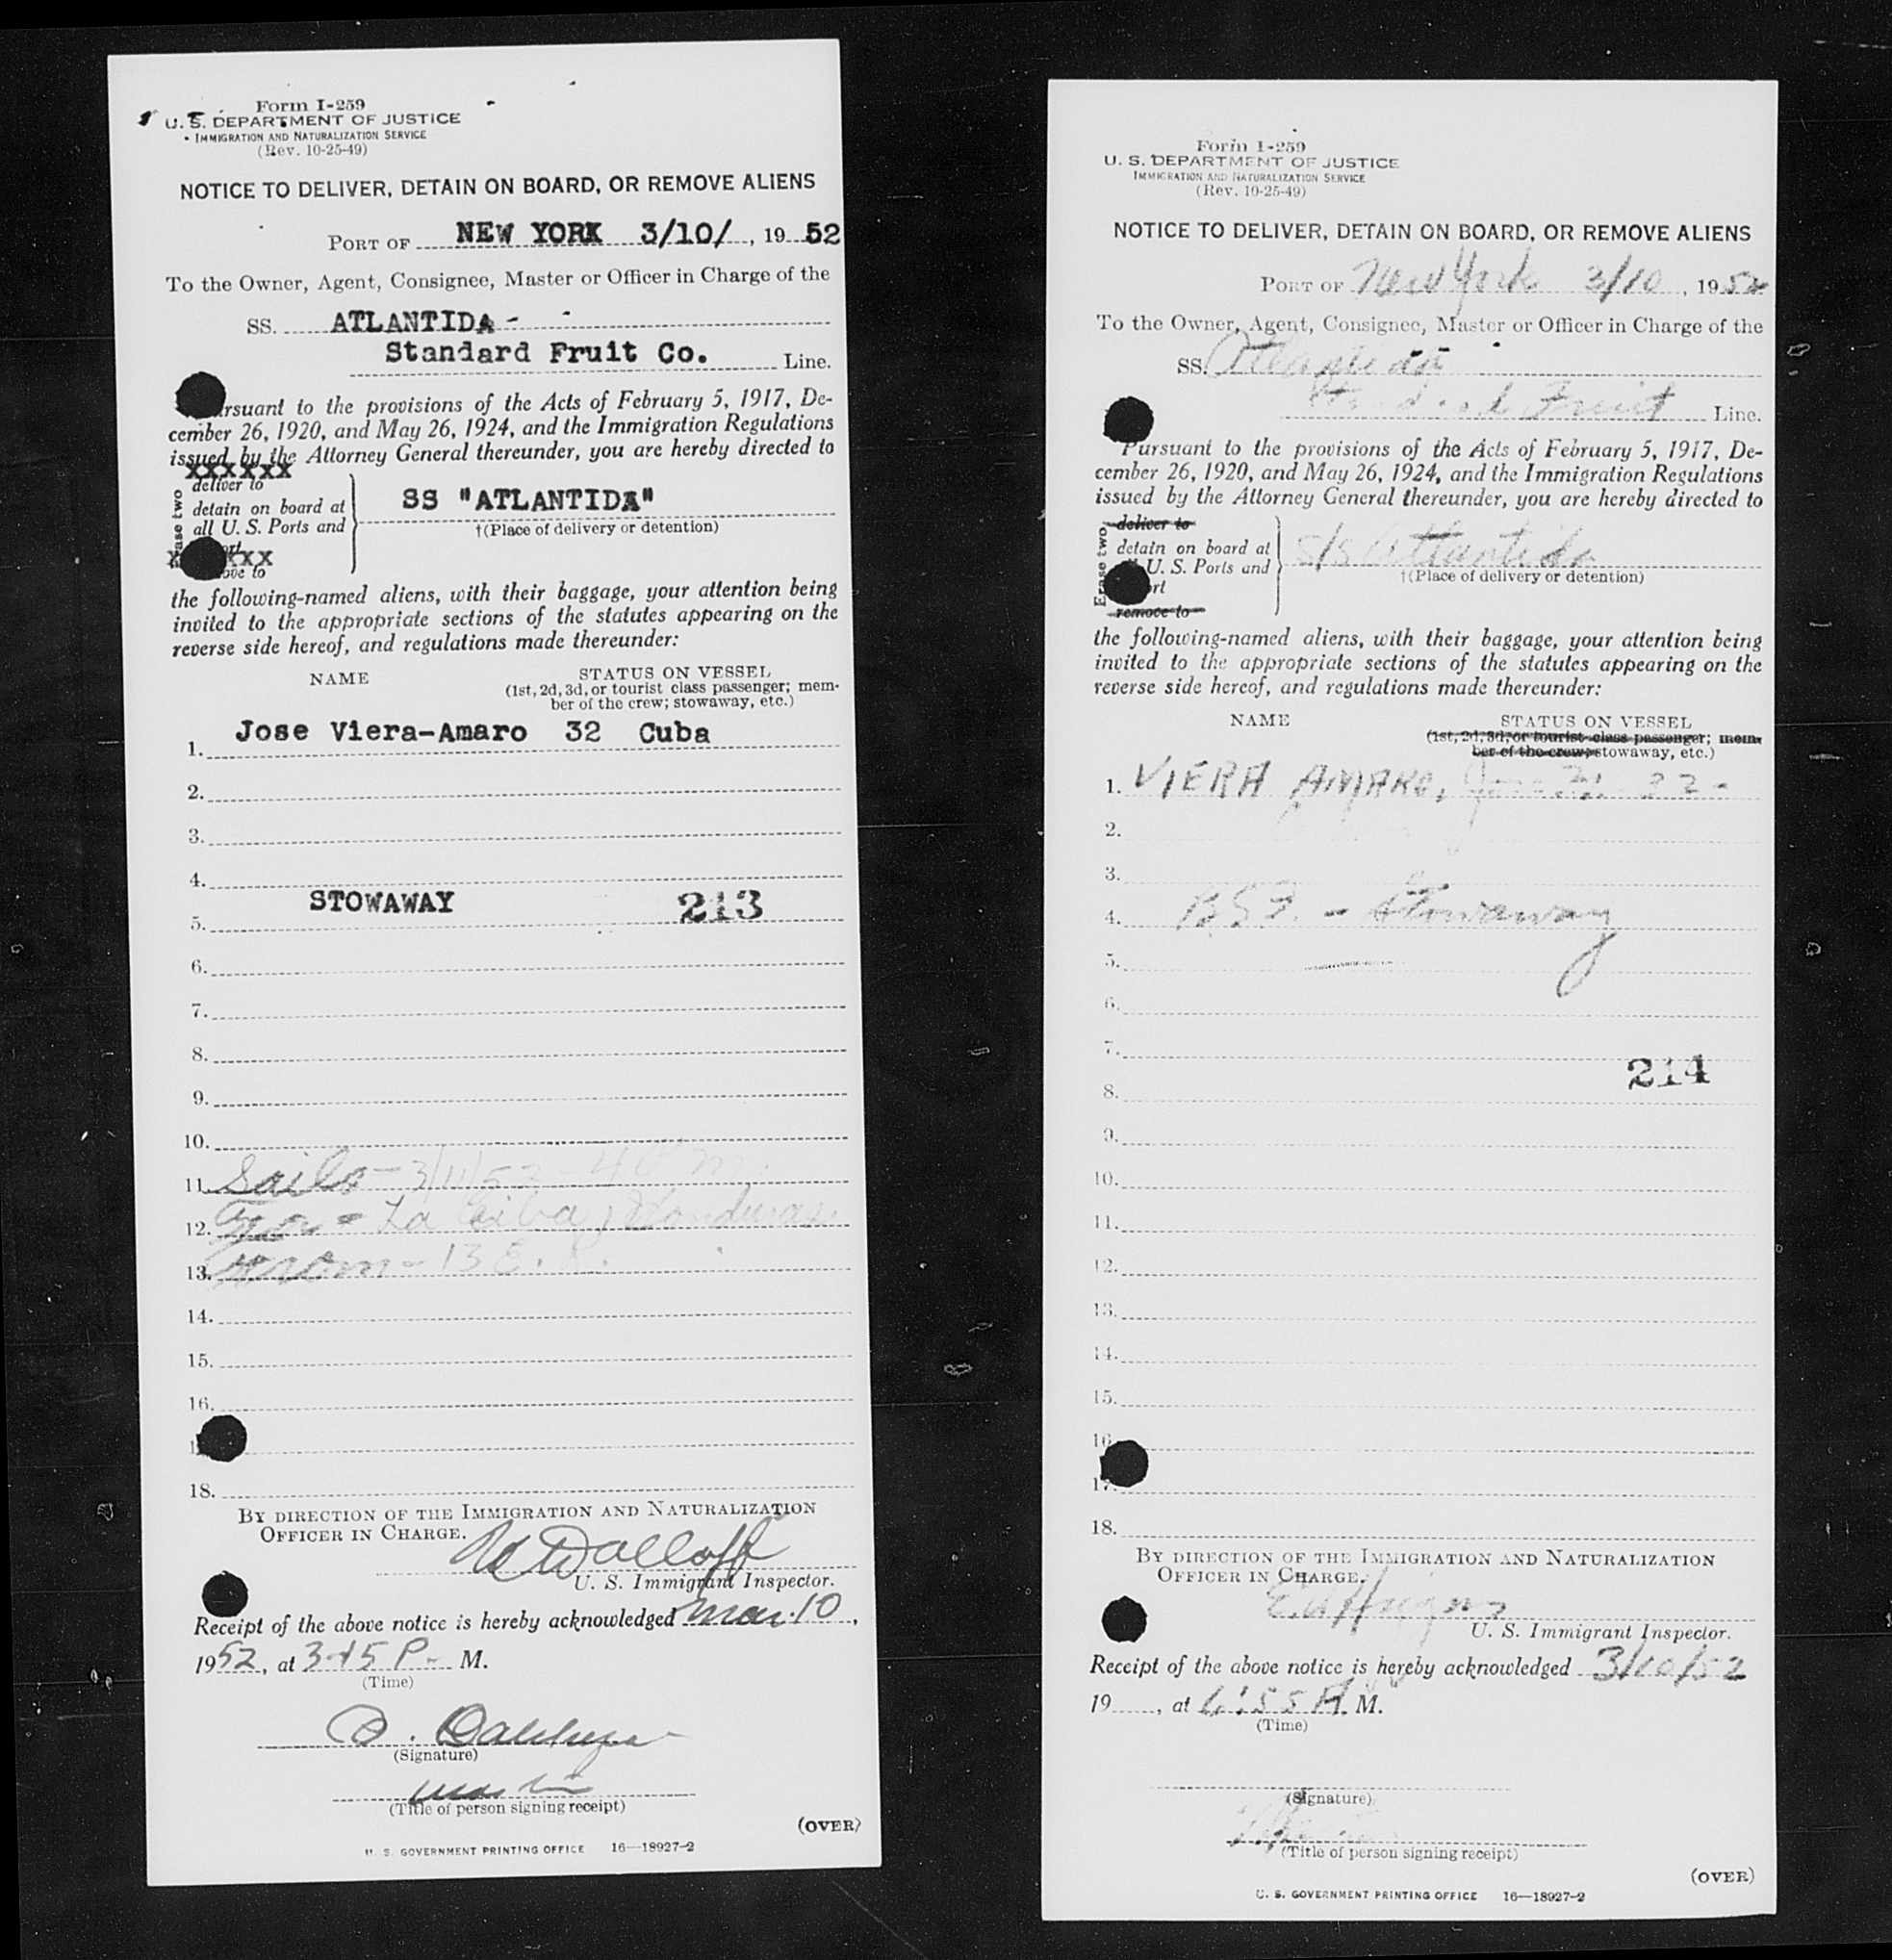 Form I-259
U. S. DEPARTMENT OF JUSTICE
IMMIGRATION AND NATURALIZATION SERVICE
(Rev. 10-25-49)
NOTICE TO DELIVER, DETAIN ON BOARD, OR REMOVE ALIENS
PORT OF NEW YORK 3/10/, 19 52
To the Owner, Agent, Consignee, Master or Officer in Charge of the
SS. ATLANTIDA -
Standard Fruit Co. Line.
Pursuant to the provisions of the Acts of February 5, 1917, De-
cember 26, 1920, and May 26, 1924, and the Immigration Regulations
issued by the Attorney General thereunder, you are hereby directed to
xxxxxx
deliver to
detain on board at
all U. S. Ports and
SS "ATLANTIDA"
†(Place of delivery or detention)
the following-named aliens, with their baggage, your attention being
invited to the appropriate sections of the statutes appearing on the
reverse side hereof, and regulations made thereunder:
NAME
STATUS ON VESSEL
(1st, 2d, 3d, or tourist class passenger; mem-
ber of the crew; stowaway, etc.)
1. Jose Viera-Amaro 32 Cuba
2.
3.
4.
STOWAWAY 213
5.
6.
7.
8.
9.
10.
11. Sails - 3/11/52 - 4
12. For - La Ceiba, Honduras
13. From - 13 E. R.
14.
15.
16.
18.
BY DIRECTION OF THE IMMIGRATION AND NATURALIZATION
OFFICER IN CHARGE.
U. S. Immigrant Inspector.
Receipt of the above notice is hereby acknowledged Mar. 10,
1952, at 3 45 P. M.
(Time)
(Signature)
(Title of person signing receipt)
(OVER)
U. S. GOVERNMENT PRINTING OFFICE 16—18927-2
Form I-259
U. S. DEPARTMENT OF JUSTICE
IMMIGRATION AND NATURALIZATION SERVICE
(Rev. 10-25-49)
NOTICE TO DELIVER, DETAIN ON BOARD, OR REMOVE ALIENS
PORT OF New York 3/10, 1952
To the Owner, Agent, Consignee, Master or Officer in Charge of the
SS. Atlantida
Standard Fruit Line.
Pursuant to the provisions of the Acts of February 5, 1917, De-
cember 26, 1920, and May 26, 1924, and the Immigration Regulations
issued by the Attorney General thereunder, you are hereby directed to
Erase two
deliver to
detain on board at
U. S. Ports and
remove to
S/S Atlantida
†(Place of delivery or detention)
the following-named aliens, with their baggage, your attention being
invited to the appropriate sections of the statutes appearing on the
reverse side hereof, and regulations made thereunder:
NAME
STATUS ON VESSEL
(1st, 2d, 3d, or tourist class passenger; mem-
ber of the crew; stowaway, etc.)
1. VIERA AMARO, Jose
2.
3.
4. Stowaway
5.
6.
7.
214
8.
9.
10.
11.
12.
13.
14.
15.
16.
17.
18.
BY DIRECTION OF THE IMMIGRATION AND NATURALIZATION
OFFICER IN CHARGE.
U. S. Immigrant Inspector.
Receipt of the above notice is hereby acknowledged 3/10/52
19, at 6:55 A. M.
(Time)
(Signature)
(Title of person signing receipt)
(OVER)
U. S. GOVERNMENT PRINTING OFFICE 16—18927-2